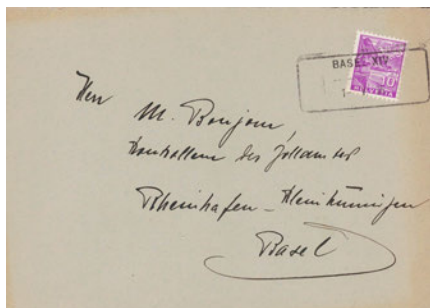 BASEL XIV
HELVETIA
Herrn
M. Bonjour
Kontrolleur des Zollamtes
Rheinhafen – Kleinhüningen
Basel